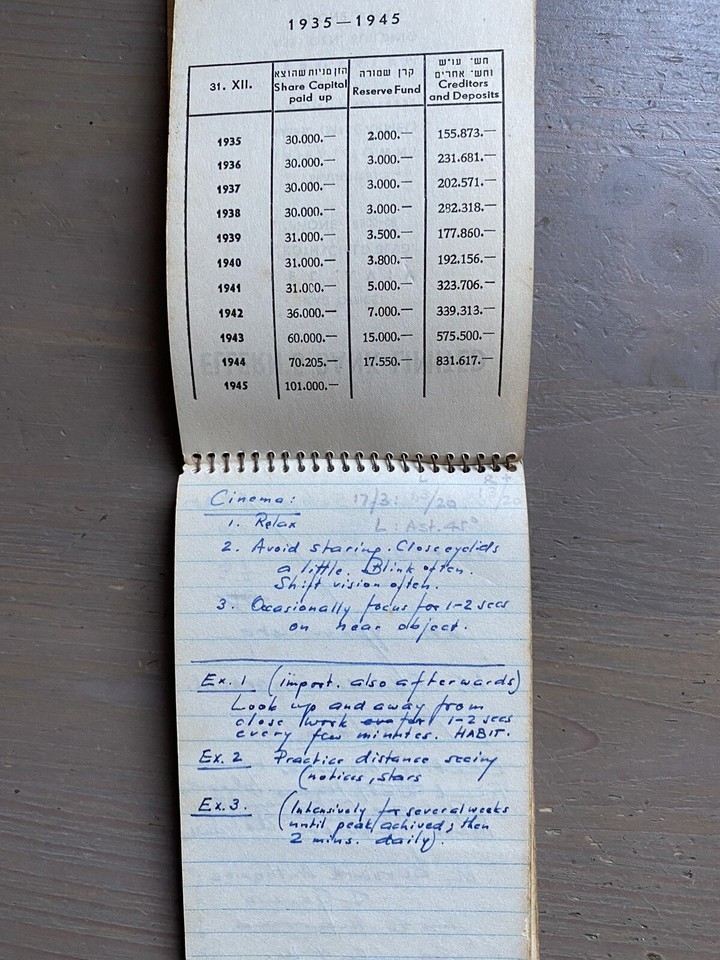 1935—1945
31. XII. הון מניות שהוצא קרן שמורה חש׳ עו״ש
וחש׳ אחרים
Share Capital paid up Reserve Fund Creditors and Deposits
1935 30.000.— 2.000.— 155.873.—
1936 30.000.— 3.000.— 231.681.—
1937 30.000.— 3.000.— 202.571.—
1938 30.000.— 3.000.— 282.318.—
1939 31.000.— 3.500.— 177.860.—
1940 31.000.— 3.800.— 192.156.—
1941 31.000.— 5.000.— 323.706.—
1942 36.000.— 7.000.— 339.313.—
1943 60.000.— 15.000.— 575.500.—
1944 70.205.— 17.550.— 831.617.—
1945 101.000.—
Cinema: 17/3: /20
1. Relax L: Ast. 45°
2. Avoid staring. Close eyelids
a little. Blink often.
Shift vision often.
3. Occasionally focus for 1-2 secs
on near object.
Ex. 1 (import. also afterwards)
Look up and away from
close work for 1-2 secs
every few minutes. HABIT.
Ex. 2 Practice distance seeing
(notices, stars
Ex. 3. (Intensively for several weeks
until peak achived; then
2 mins. daily).